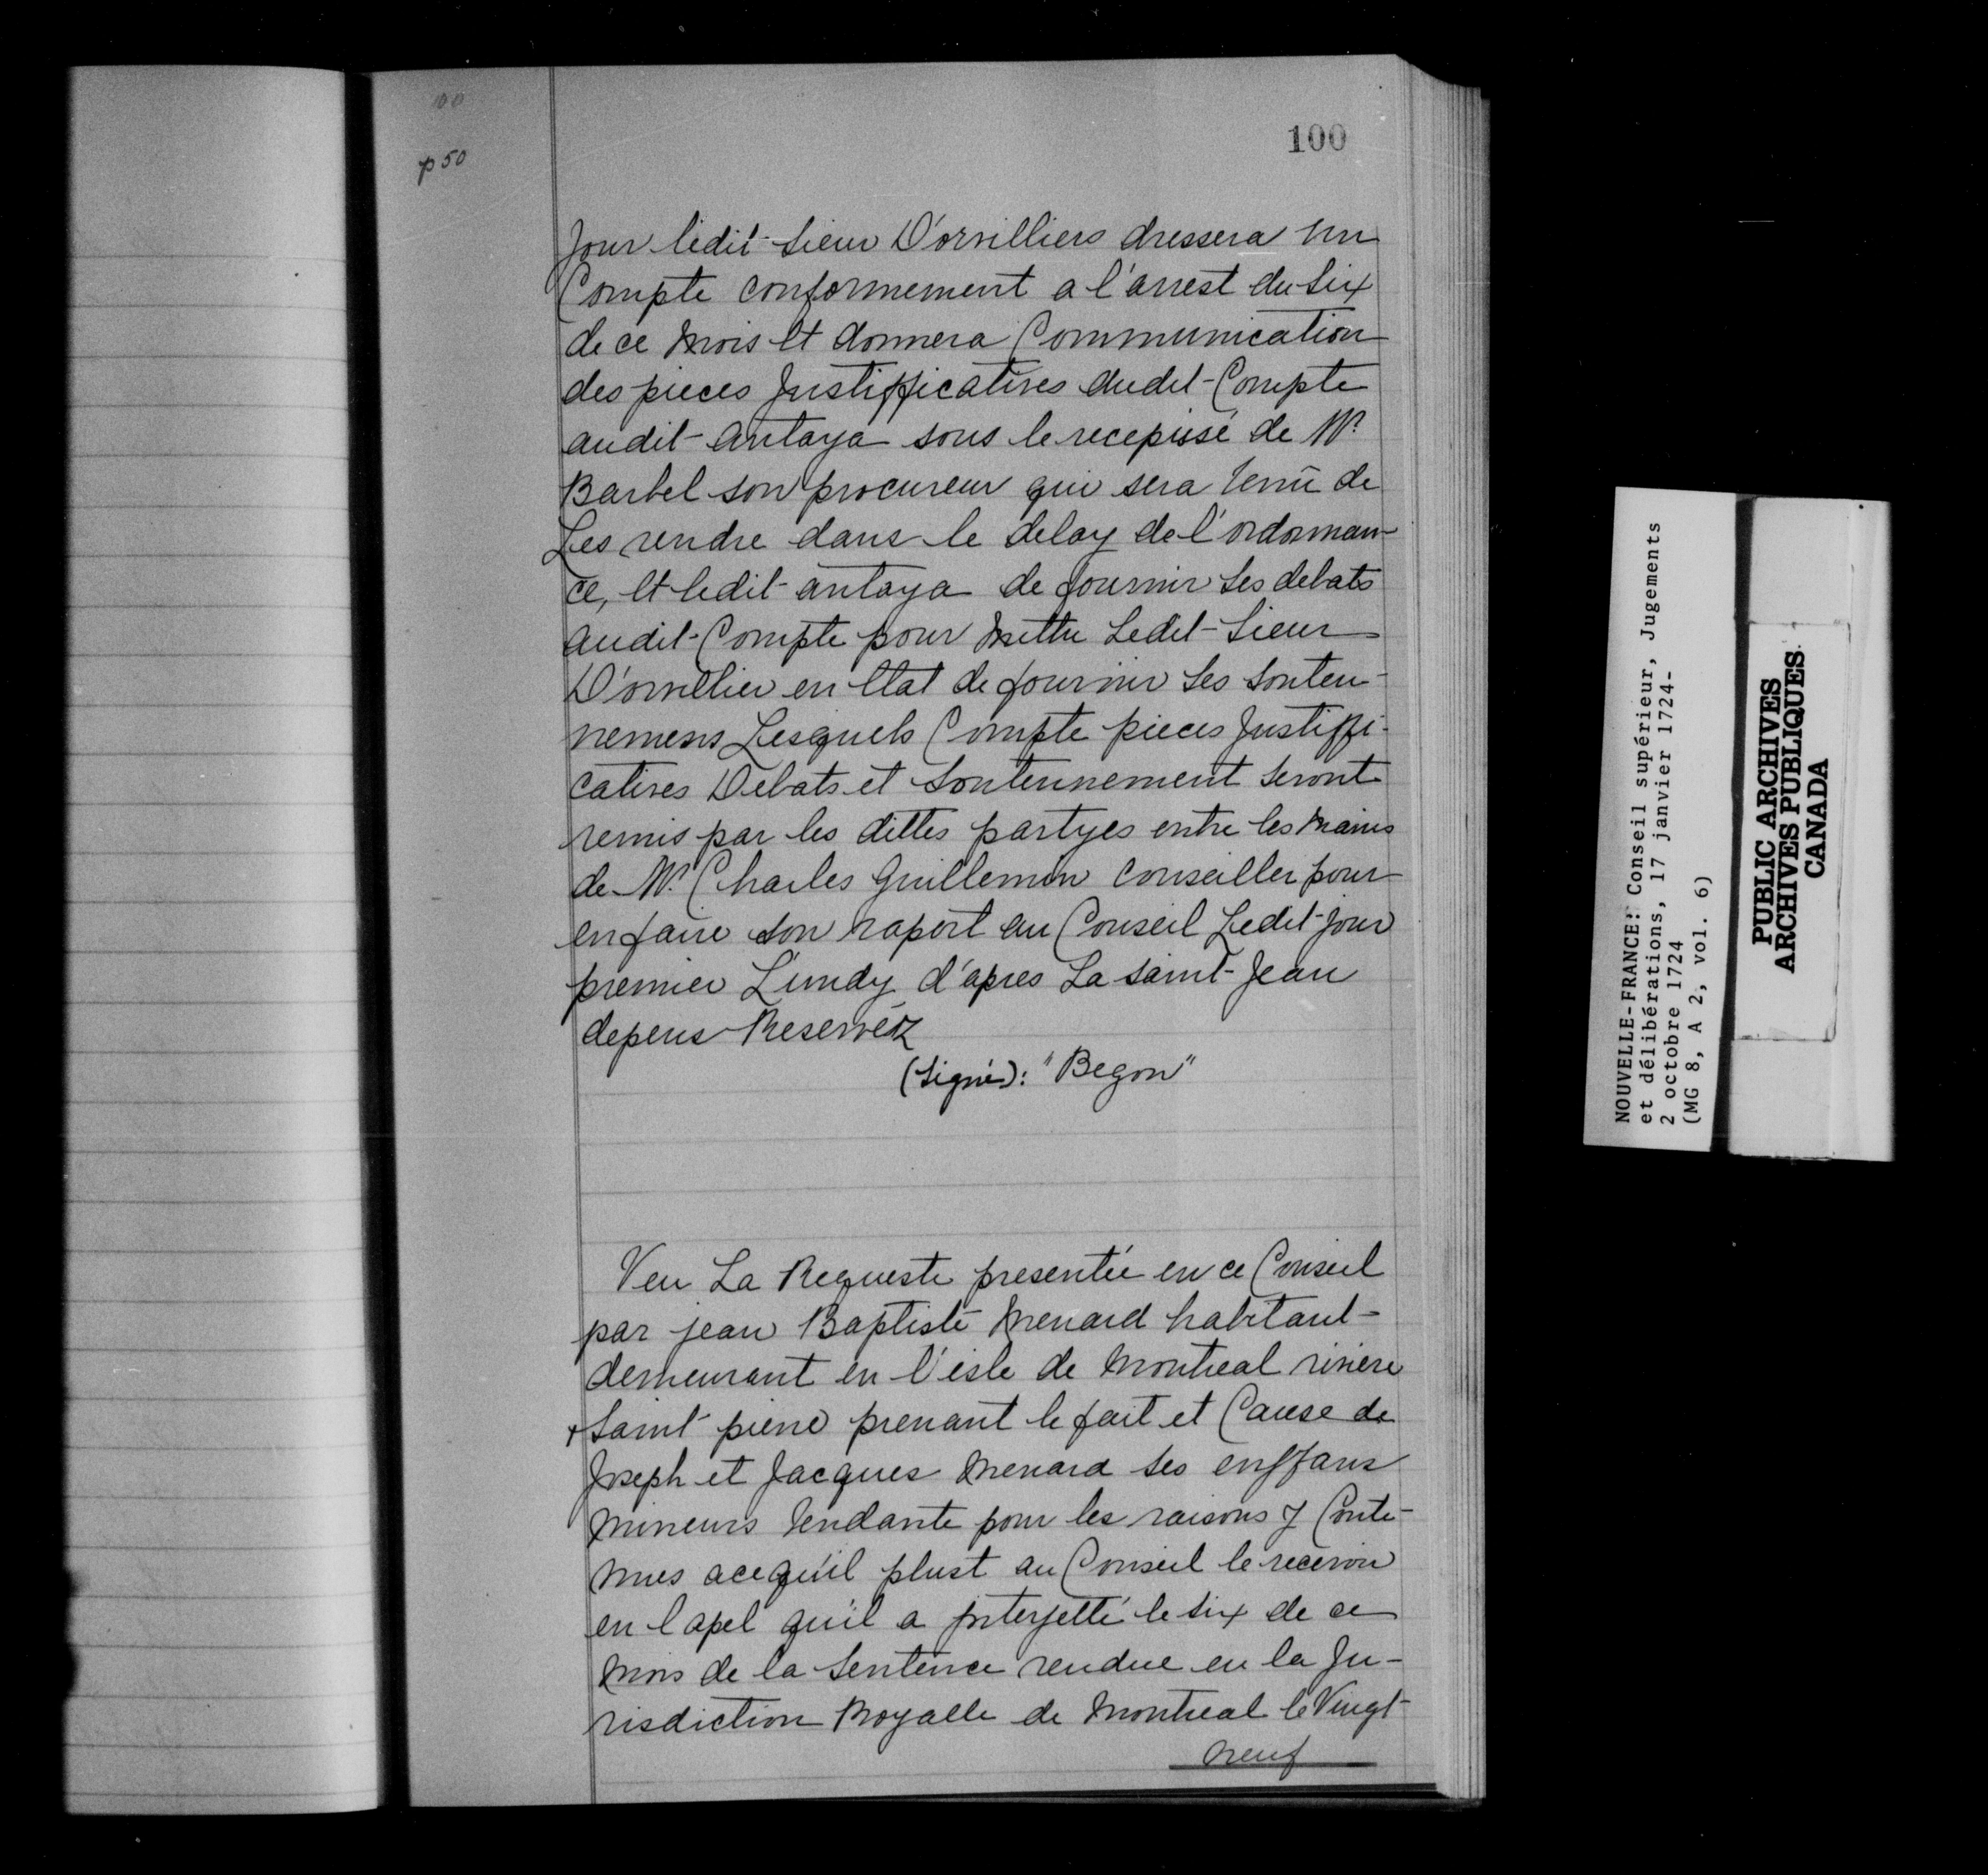 100
p 50
100
Jour ledit Sieur D'orvilliers dressera un
Compte conformement a l'arrest du Six
de ce mois et donnera Communication
des pieces Justifficatives dudit Compte
audit antaya sous le recepissé de Mr.
Barbel son procureur qui sera tenû de
Les rendre dans le delay de l'ordonnan-
ce, et ledit antaya de fournir Ses debats
audit Compte pour mettre Ledit Sieur
D'orvillier en Etat de fournir Ses Souten-
nemens Lesquels Compte pieces Justiffi-
catives Debats et Soutennement Seront
remis par les dittes partyes entre les mains
de Mr. Charles Guillemin Conseiller pour
en faire son raport au Conseil Ledit jour
premier Lundy d'apres La Saint Jean
depens Reservéz
(Signé): "Begon"
Veu La Requeste presentée en ce Conseil
par jean Baptiste Menard habitant
demeurant en l'isle de Montreal riviere
+ Saint pierre prenant le fait et Cause de
Joseph et Jacques Menard Ses enffans
mineurs tendante pour les raisons y Conte-
nues acequ'il plust au Conseil le recevoir
en l apel qu'il a Interjetté le Six de ce
mois de la Sentence rendue en la Ju-
risdiction Royalle de Montreal le Vingt
neuf
NOUVELLE-FRANCE: Conseil supérieur, Jugements
et délibérations, 17 janvier 1724-
2 octobre 1724
(MG 8, A 2, vol. 6)
PUBLIC ARCHIVES
ARCHIVES PUBLIQUES
CANADA